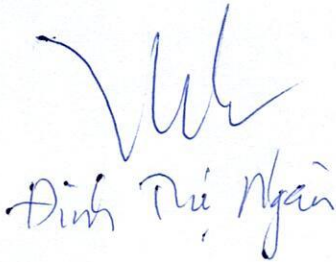 Đinh Thị Ngân